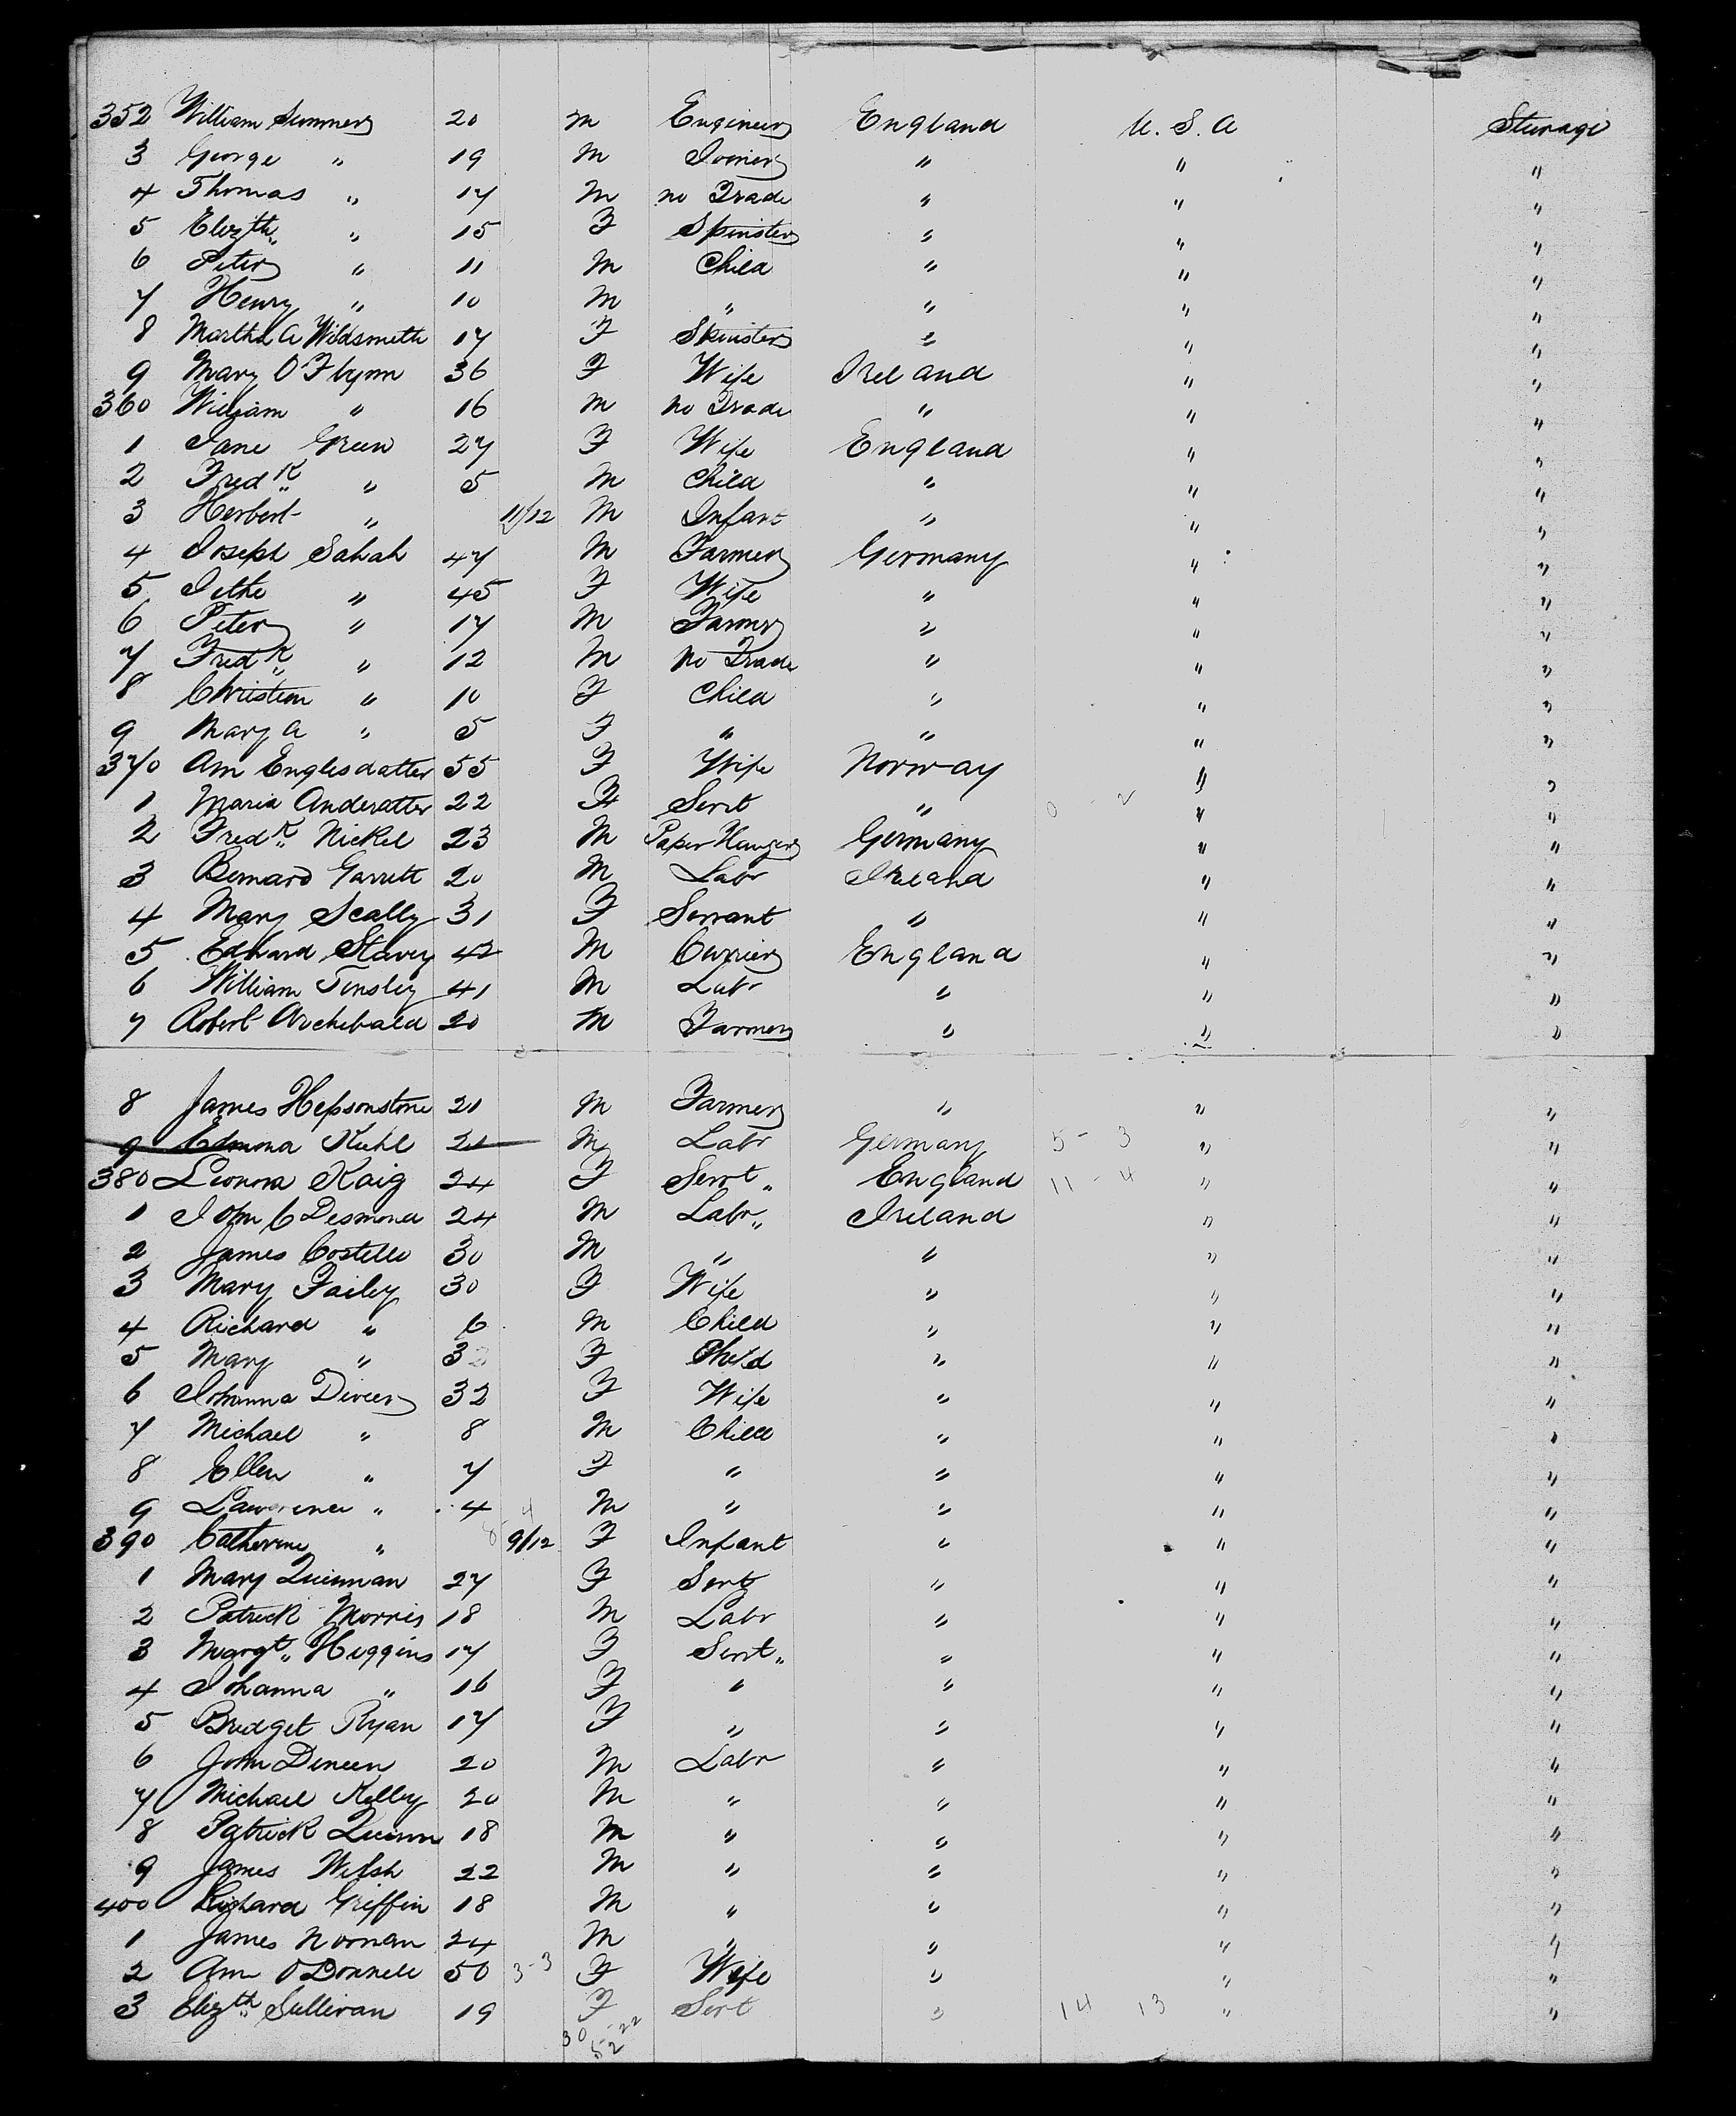 352 William Summers 20 M Engineer England U.S.A Steerage
3 George " 19 M Joiner " " "
4 Thomas " 17 M no Trade " " "
5 Elizth " 15 F Spinster " " "
6 Peter " 11 M Child " " "
7 Henry " 10 M " " " "
8 Martha A Wildsmith 17 F Spinster " " "
9 Mary O'Flynn 36 F Wife Ireland " "
360 William " 16 M no Trade " " "
1 Jane Green 27 F Wife England " "
2 Fredk " 5 M Child " " "
3 Herbert " 11/12 M Infant " " "
4 Joseph Sahah 47 M Farmer Germany " "
5 " 45 F Wife " " "
6 Peter " 17 M Farmer " " "
7 Fredk " 12 M no Trade " " "
8 Christian " 10 F Child " " "
9 Mary A " 5 F " " " "
370 Ann Englesdatter 55 F Wife Norway " "
1 Maria Anderatter 22 F Servt " 0 - 2 " "
2 Fredk Nickel 23 M Paper Hanger Germany " "
3 Bernard Garrett 20 M Labr Ireland " "
4 Mary Scally 31 F Servant " " "
5 Edward Stavey 42 M Currier England " "
6 William Tinsley 41 M Labr " " "
7 Robert Archibald 20 M Farmer " " "
8 James Hepsonstone 21 M Farmer " " "
9 Edmona Kuhl 21 M Labr Germany 5 - 3 " "
380 Leonora Kaig 24 F Servt England 11 - 4 " "
1 John C Desmond 24 M Labr Ireland " "
2 James Costello 30 M " " " "
3 Mary Failey 30 F Wife " " "
4 Richard " 6 M Child " " "
5 Mary " 3 F Child " " "
6 Johanna Diveer 32 F Wife " " "
7 Michael " 8 M Child " " "
8 Ellen " 7 F " " " "
9 Lawrence " 4 4 M " " " "
390 Catherine " 9/12 F Infant " " "
1 Mary Quinnan 27 F Servt " " "
2 Patrick Morris 18 M Labr " " "
3 Margt Higgins 17 F Servt " " "
4 Johanna " 16 F " " " "
5 Bridget Ryan 17 F " " " "
6 John Dineen 20 M Labr " " "
7 Michael Kelley 20 M " " " "
8 Patrick Quinn 18 M " " " "
9 James Welsh 22 M " " " "
400 Richard Griffin 18 M " " " "
1 James Nornan 24 M " " " "
2 Ann O'Donnell 50 3-3 F Wife " " "
3 Elizth Sullivan 19 F Sert " 14 13 " "
30 5-22
52